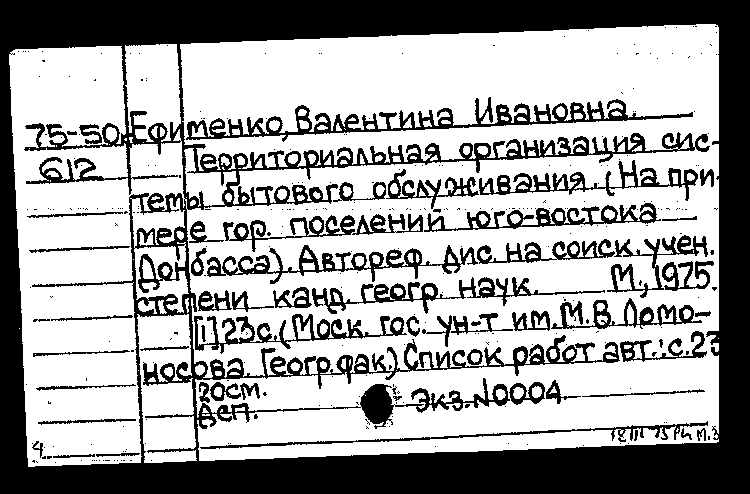 75-50. Ефименко, Валентина Ивановна.
612 Территориальная организация сис-
темы бытового обслуживания. (На при-
мере гор. поселений юго-востока
Донбасса). Автореф. дис. на соиск. учен.
степени канд. геогр. наук. М., 1975.
[1], 23 с. (Моск. гос. ун-т им. М. В. Ломо-
носова. Геогр. фак.) Список работ авт.: с. 23
20см.
Деп. Экз. N0004.
4